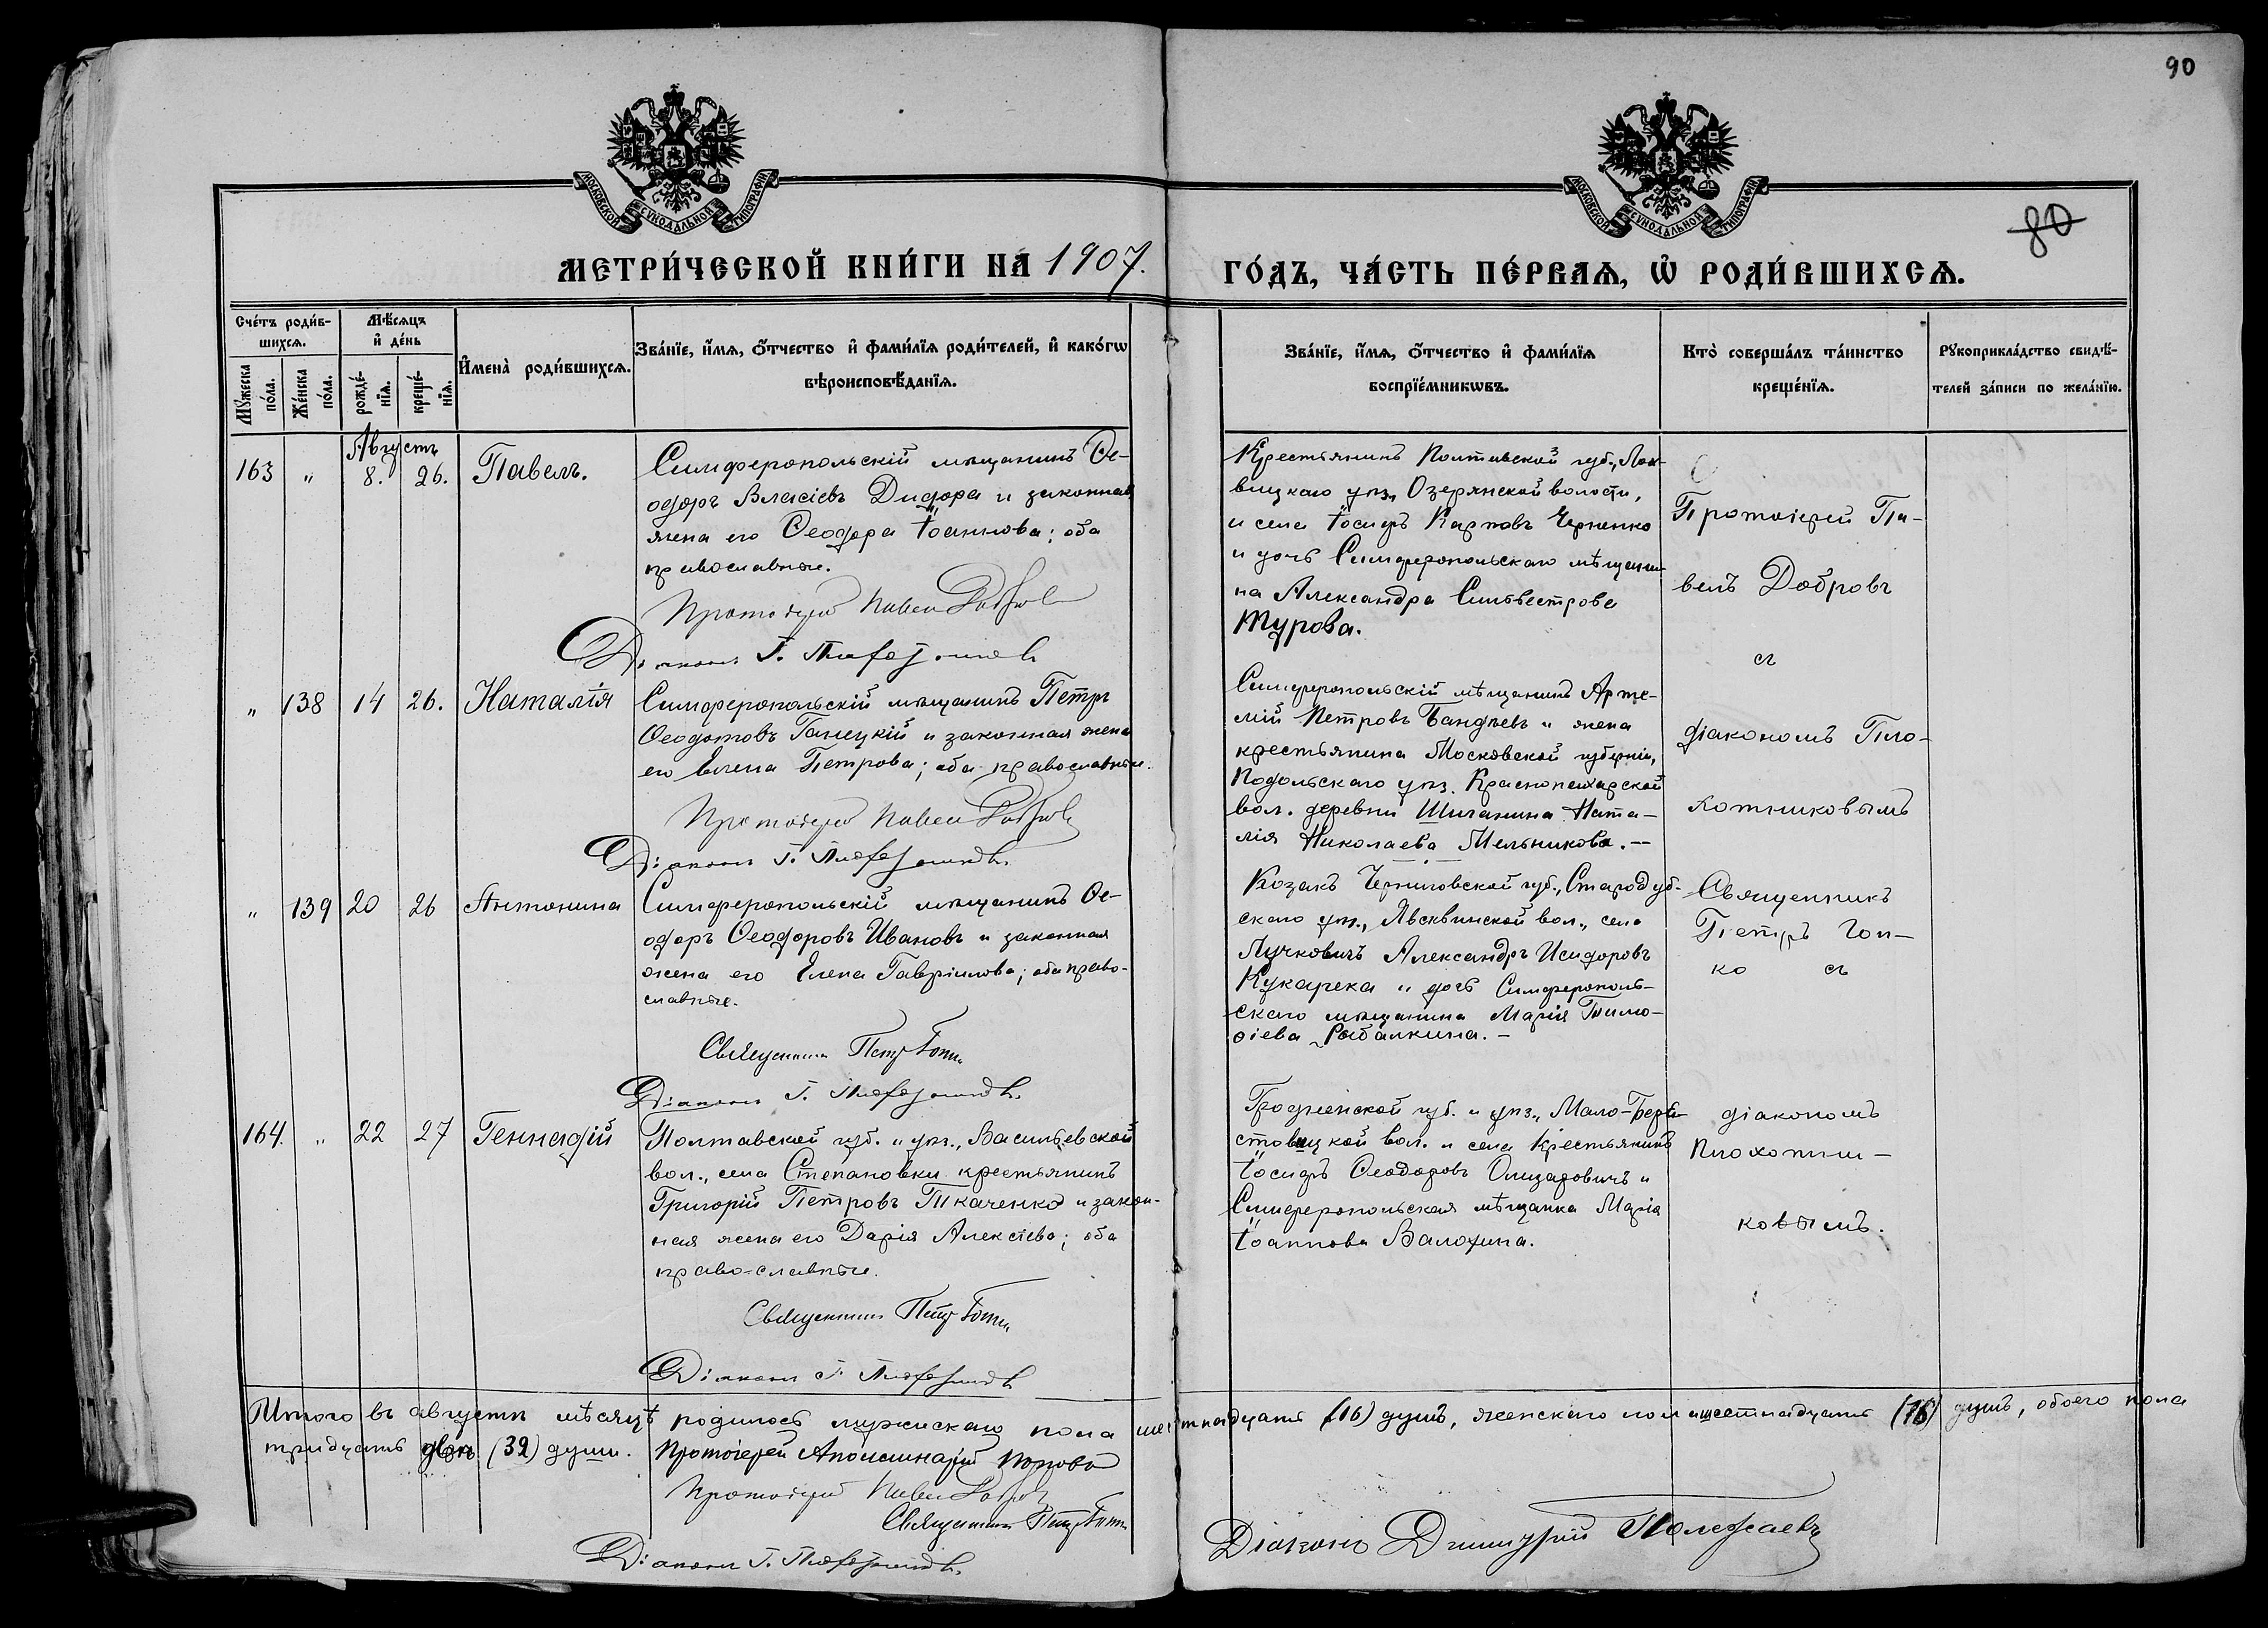 90
МОСКОВСКОЙ СѴНОДАЛЬНОЙ ТИПОГРАФІИ
МОСКОВСКОЙ СѴНОДАЛЬНОЙ ТИПОГРАФІИ
80
МЕТРИ́ЧЕСКОЙ КНИ́ГИ НА 1907.
ГО́ДЪ, ЧА́СТЬ ПЕ́РВАѦ, Ѡ РОДИ́ВШИХСѦ.
Сче́тъ роди́в-
шихсѧ.
Мѣ́сѧцъ
и҆ де́нь
Мꙋ́жеска по́ла.
Же́нска по́ла.
рожде́-
нїѧ.
креще́-
нїѧ.
И҆мена̀ роди́вшихсѧ.
Зва́нїе, и҆́мѧ, ѻ҆́тчество и҆ фами́лїѧ роди́телей, и҆ како́гѡ
вѣроисповѣ́данїѧ.
Зва́нїе, и҆́мѧ, ѻ҆́тчество и҆ фами́лїѧ
воспрїе́мникѡвъ.
Кто̀ соверша́лъ та́инство
креще́нїѧ.
Рꙋкоприкла́дство свидѣ́-
телей за́писи по жела́нїю.
Августъ
163 " 8. 26. Павелъ.
Симферопольскій мѣщанинъ Ѳе-
одоръ Власіевъ Дидора и законная
жена его Ѳеодора Іоаннова; оба
православные.
Протоіерей Павелъ Добровъ
Діаконъ Г. Плохотниковъ
Крестьянинъ Полтавской губ., Лох-
вицкаго уѣз., Озерянской волости,
и села Іосифъ Карповъ Черненко
и дочь Симферопольскаго мѣщани-
на Александра Сильвестрова
Турова.
Протоіерей Па-
велъ Добровъ
съ
" 138 14 26. Наталія
Симферопольскій мѣщанинъ Петръ
Ѳеодотовъ Ганецкій и законная жена
его Елена Петрова; оба православные.
Протоіерей Павелъ Добровъ
Діаконъ Г. Плохотниковъ
Симферопольскій мѣщанинъ Арте-
мій Петровъ Бандѣевъ и жена
крестьянина Московской губерніи,
Подольскаго уѣз. Краснопахарской
вол. деревни Шиганина Ната-
лія Николаева Мельникова. —
діакономъ Пло-
хотниковымъ
" 139 20 26 Антонина
Симферопольскій мѣщанинъ Ѳе-
одоръ Ѳеодоровъ Ивановъ и законная
жена его Елена Гавріилова; оба право-
славные.
Священникъ Петръ Гопко
Діаконъ Г. Плохотниковъ
Козакъ Черниговской губ., Стародуб-
скаго уѣз., вол., села
Лучковичъ Александръ Исидоровъ
Кукарека и дочь Симферополь-
скаго мѣщанина Марія Тимо-
ѳіева Рыбалкина. —
Священникъ
Петръ Гоп-
ко съ
164. " 22 27 Геннадій
Полтавской губ. и уѣз., Васильевской
вол., села Степановки крестьянинъ
Григорій Петровъ Ткаченко и закон-
ная жена его Дарія Алексѣева; оба
право-славные.
Священникъ Петръ Гопко
Діаконъ Г. Плохотниковъ
Гродненской губ. и уѣз., Мало-Бере-
стовицкой вол. и села крестьянинъ
Іосифъ Ѳеодоровъ Олизаровичъ и
Симферопольская мѣщанка Марія
Іоаннова Валохина.
діакономъ
Плохотни-
ковымъ.
Итого въ августѣ мѣсяцѣ родилось мужскаго пола шестнадцать (16) душъ, женскаго пола шестнадцать (16) душъ, обоего пола
тридцать двѣ (32) души. Протоіерей Аполлинарій Поповъ
Протоіерей Павелъ Добровъ
Священникъ Петръ Гопко
Діаконъ Г. Плохотниковъ
Діаконъ Димитрій Полежаевъ